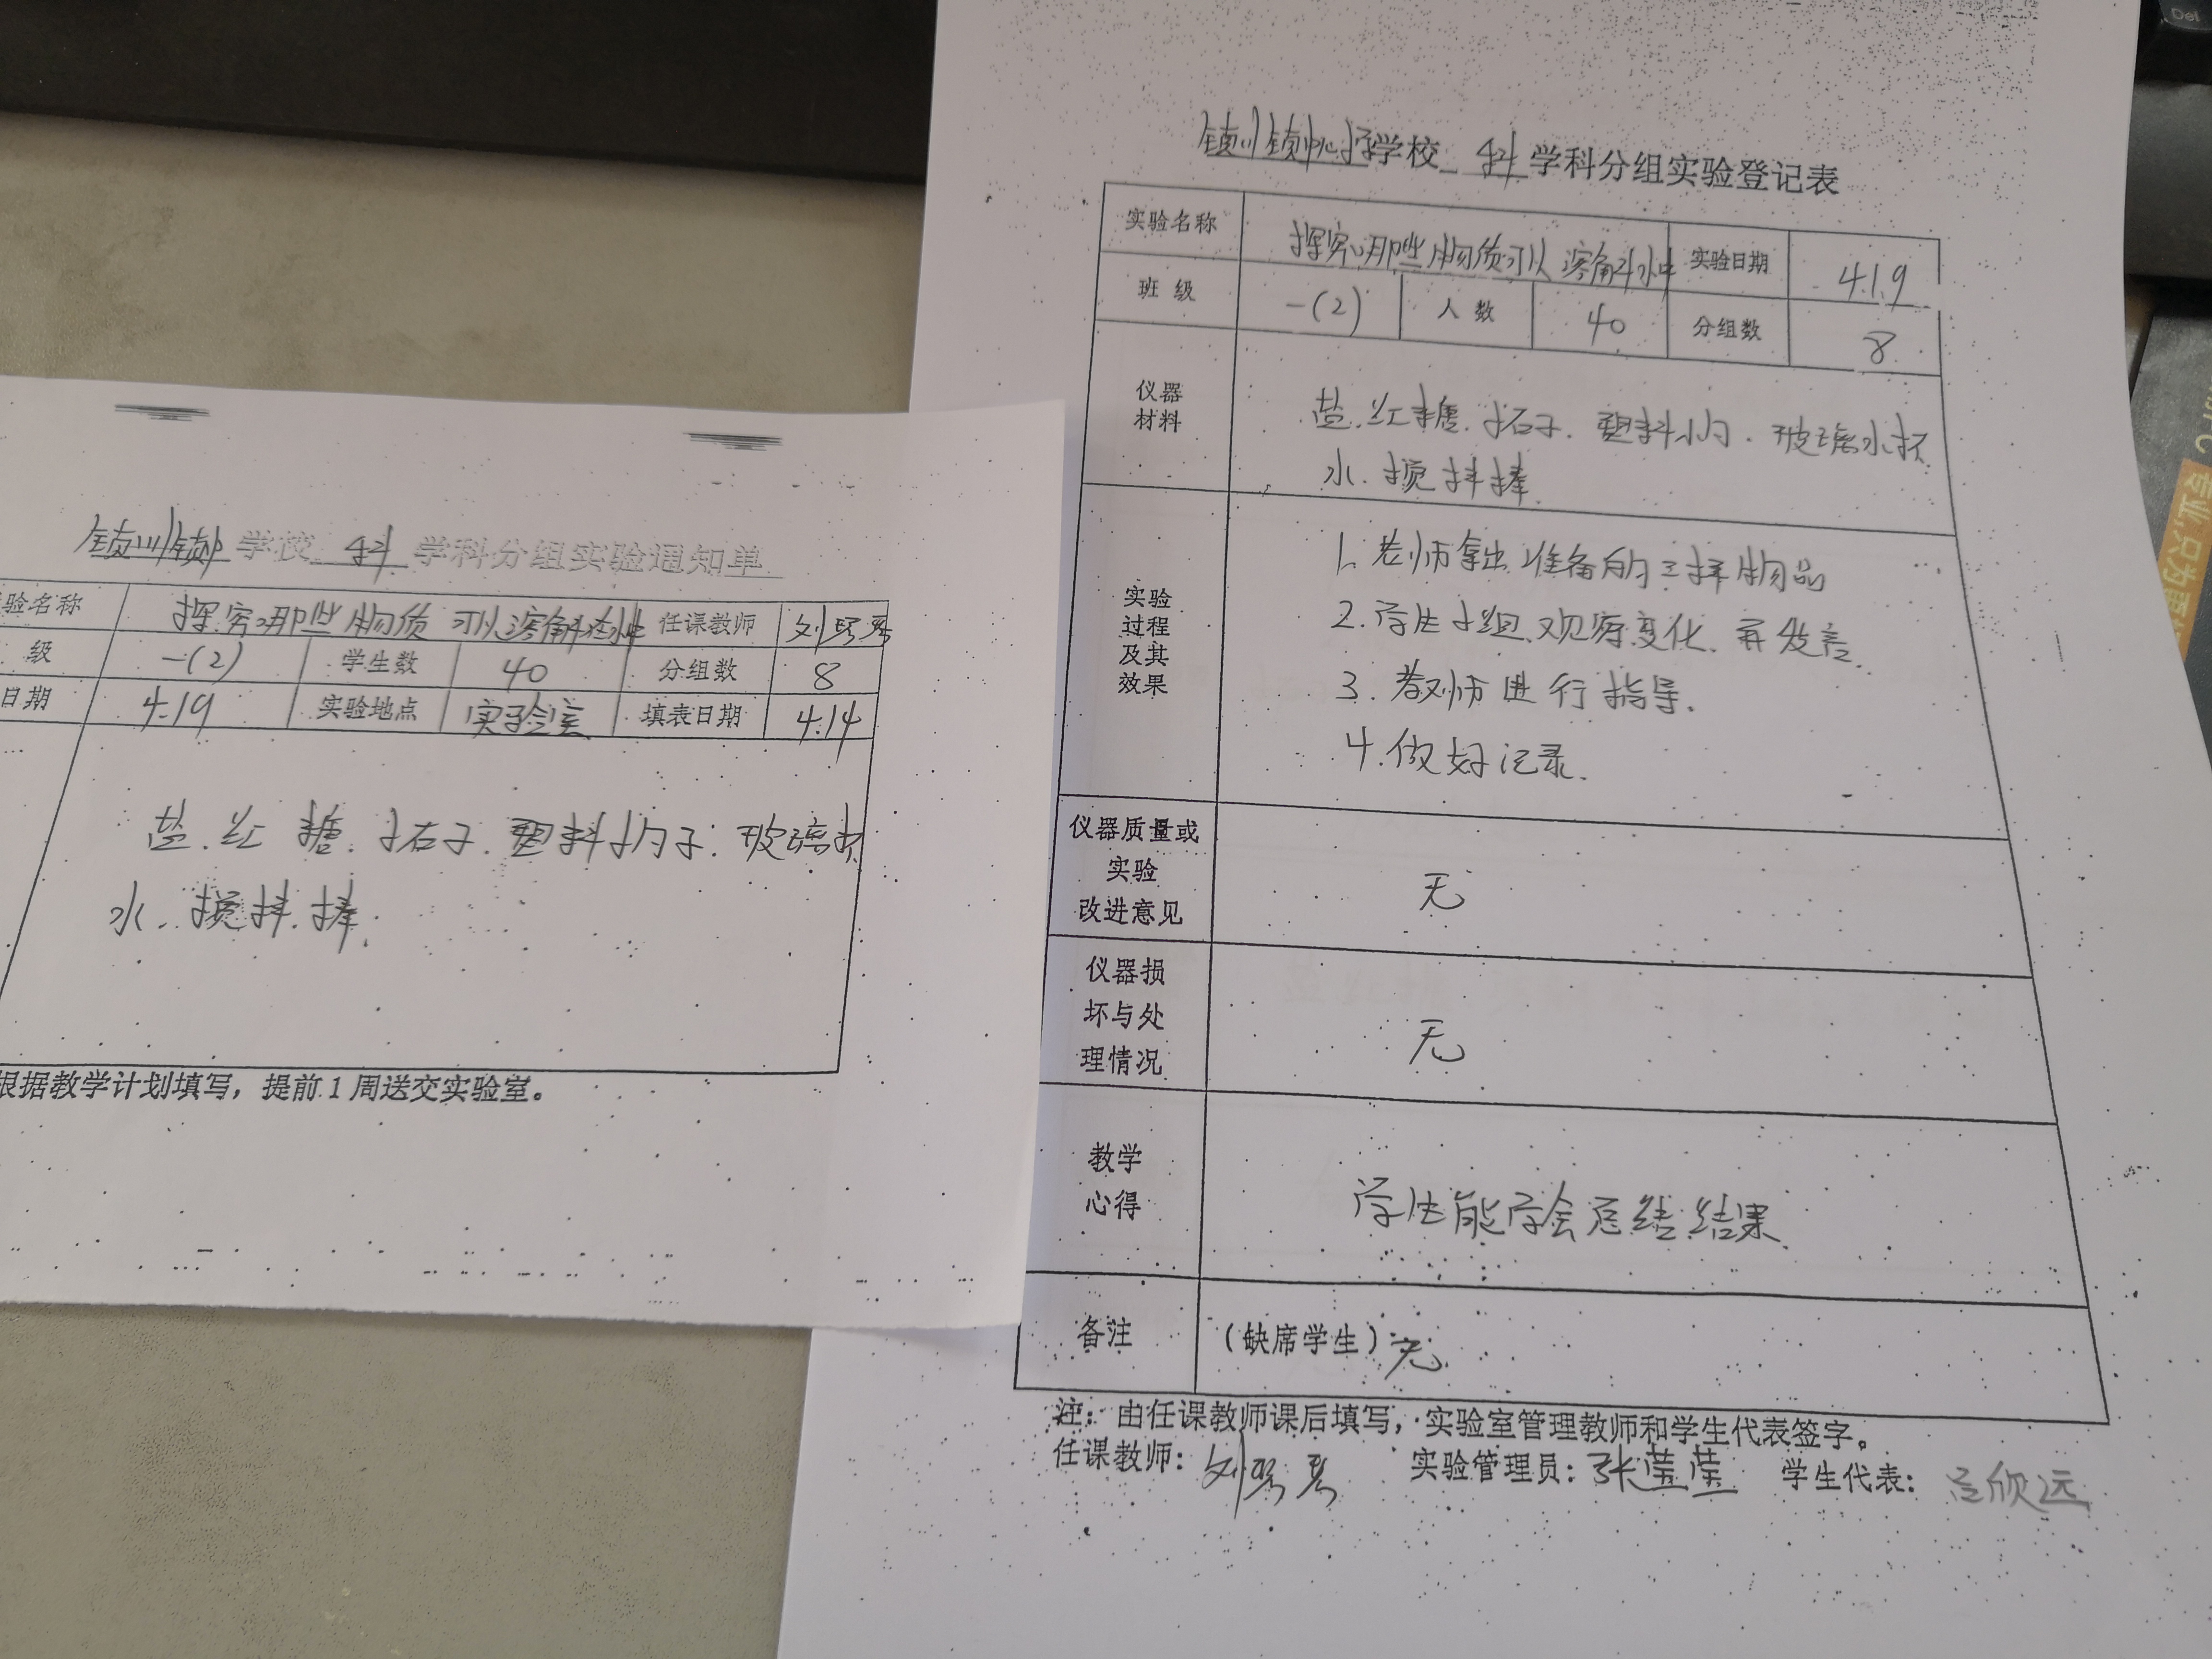 镇川镇中 学校 科 学科分组实验通知单
验名称 探究哪些物质可以溶解在水中 任课教师 刘琴琴
级 一(2) 学生数 40 分组数 8
日期 4.19 实验地点 实验室 填表日期 4.14
盐.红糖.小石子.塑料小勺子.玻璃杯
水.搅拌棒.
根据教学计划填写，提前1周送交实验室。
镇川镇中心小学学校 科 学科分组实验登记表
实验名称 探究哪些物质可以溶解水中 实验日期 4.19
班级 一(2) 人数 40 分组数 8
仪器
材料
盐.红糖.小石子.塑料小勺.玻璃水杯
水.搅拌棒
实验
过程
及其
效果
1.老师拿出准备的三样物品
2.学生小组观察变化.再发言.
3.教师进行指导.
4.做好记录.
仪器质量或
实验
改进意见
无
仪器损
坏与处
理情况
无
教学
心得
学生能学会总结结果.
备注 (缺席学生)无.
注：由任课教师课后填写，实验室管理教师和学生代表签字。
任课教师：刘琴琴 实验管理员：张莹莹 学生代表：欣远
Del
专业，只为